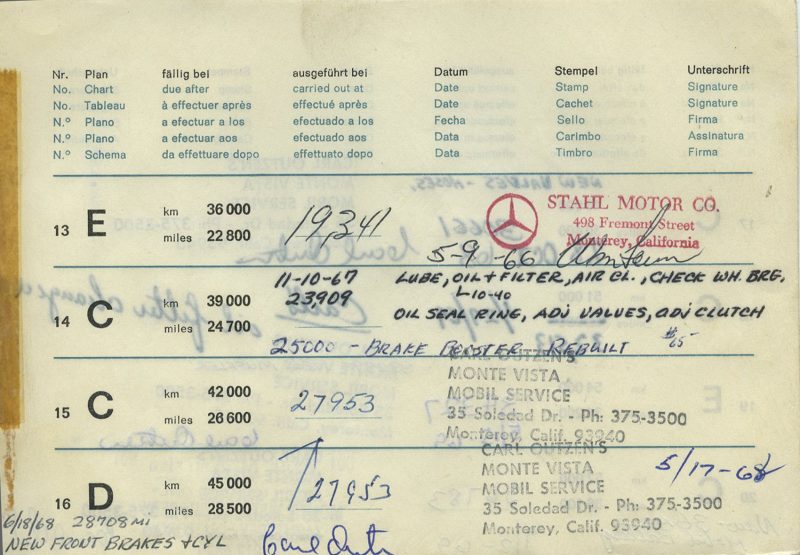 Nr. Plan fällig bei ausgeführt bei Datum Stempel Unterschrift
No. Chart due after carried out at Date Stamp Signature
No. Tableau à effectuer après effectué après Date Cachet Signature
N.º Plano a efectuar a los efectuado a los Fecha Sello Firma
N.º Plano a efectuar aos efectuado aos Data Carimbo Assinatura
N.º Schema da effettuare dopo effettuato dopo Data Timbro Firma
STAHL MOTOR CO.
498 Fremont Street
Monterey, California
13 E km 36 000 19,341
miles 22 800
5-9-66
11-10-67 LUBE, OIL + FILTER, AIR CL., CHECK WH. BRG,
14 C km 39 000 23909 L-10-40
miles 24 700 OIL SEAL RING, ADJ VALUES, ADJ CLUTCH
25000 - BRAKE BOOSTER REBUILT #65
CARL OUTZEN'S
MONTE VISTA
MOBIL SERVICE
35 Soledad Dr. - Ph: 375-3500
Monterey, Calif. 93940
15 C km 42 000 27953
miles 26 600
CARL OUTZEN'S
MONTE VISTA
MOBIL SERVICE
35 Soledad Dr. - Ph: 375-3500
Monterey, Calif. 93940
5/17-68
16 D km 45 000 27953
miles 28 500
6/18/68 28708 MI
NEW FRONT BRAKES + CYL